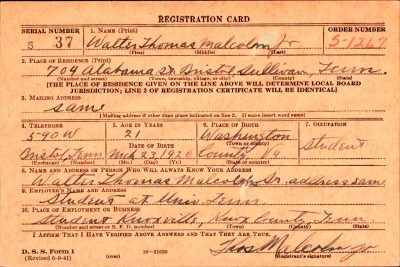 REGISTRATION CARD
SERIAL NUMBER 1. NAME (Print) ORDER NUMBER
S 37 Walter Thomas Malcolm Jr S-1267
2. PLACE OF RESIDENCE (Print)
704 Alabama St Bristol, Sullivan, Tenn.
(Number and street) (Town, township, village, or city) (County) (State)
[THE PLACE OF RESIDENCE GIVEN ON THE LINE ABOVE WILL DETERMINE LOCAL BOARD
JURISDICTION; LINE 2 OF REGISTRATION CERTIFICATE WILL BE IDENTICAL]
3. MAILING ADDRESS
same
[Mailing address if other than place indicated on line 2. If same, insert word same]
4. TELEPHONE 5. AGE IN YEARS 6. PLACE OF BIRTH 7. OCCUPATION
5-90 W 21 Washington Student
DATE OF BIRTH (Town or county)
Bristol, Tenn 23, 1920 County, Va
(Exchange) (Number) (Mo.) (Day) (Yr.) (State or country)
8. NAME AND ADDRESS OF PERSON WHO WILL ALWAYS KNOW YOUR ADDRESS
Walter Thomas Malcolm Sr. address same
9. EMPLOYER'S NAME AND ADDRESS
Student at Univ Tenn.
10. PLACE OF EMPLOYMENT OR BUSINESS
Student Knoxville, Knox County, Tenn
(Street or R. F. D. number) (Town) (County) (State)
I AFFIRM THAT I HAVE VERIFIED ABOVE ANSWERS AND THAT THEY ARE TRUE.
D. S. S. Form 1 (over) Malcolm Jr
(Revised 6-9-41) (Registrant's signature)